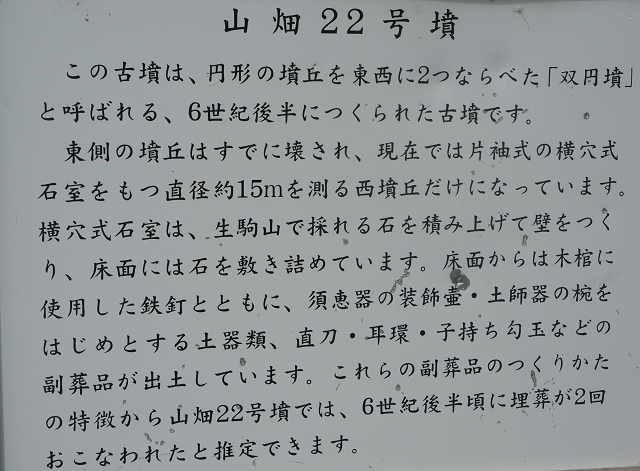 山畑22号墳
この古墳は、円形の墳丘を東西に2つならべた「双円墳」
と呼ばれる、6世紀後半につくられた古墳です。
東側の墳丘はすでに壊され、現在では片袖式の横穴式
石室をもつ直径約15mを測る西墳丘だけになっています。
横穴式石室は、生駒山で採れる石を積み上げて壁をつく
り、床面には石を敷き詰めています。床面からは木棺に
使用した鉄釘とともに、須恵器の装飾壷・土師器の椀を
はじめとする土器類、直刀・耳環・子持ち勾玉などの
副葬品が出土しています。これらの副葬品のつくりかた
の特徴から山畑22号墳では、6世紀後半頃に埋葬が2回
おこなわれたと推定できます。